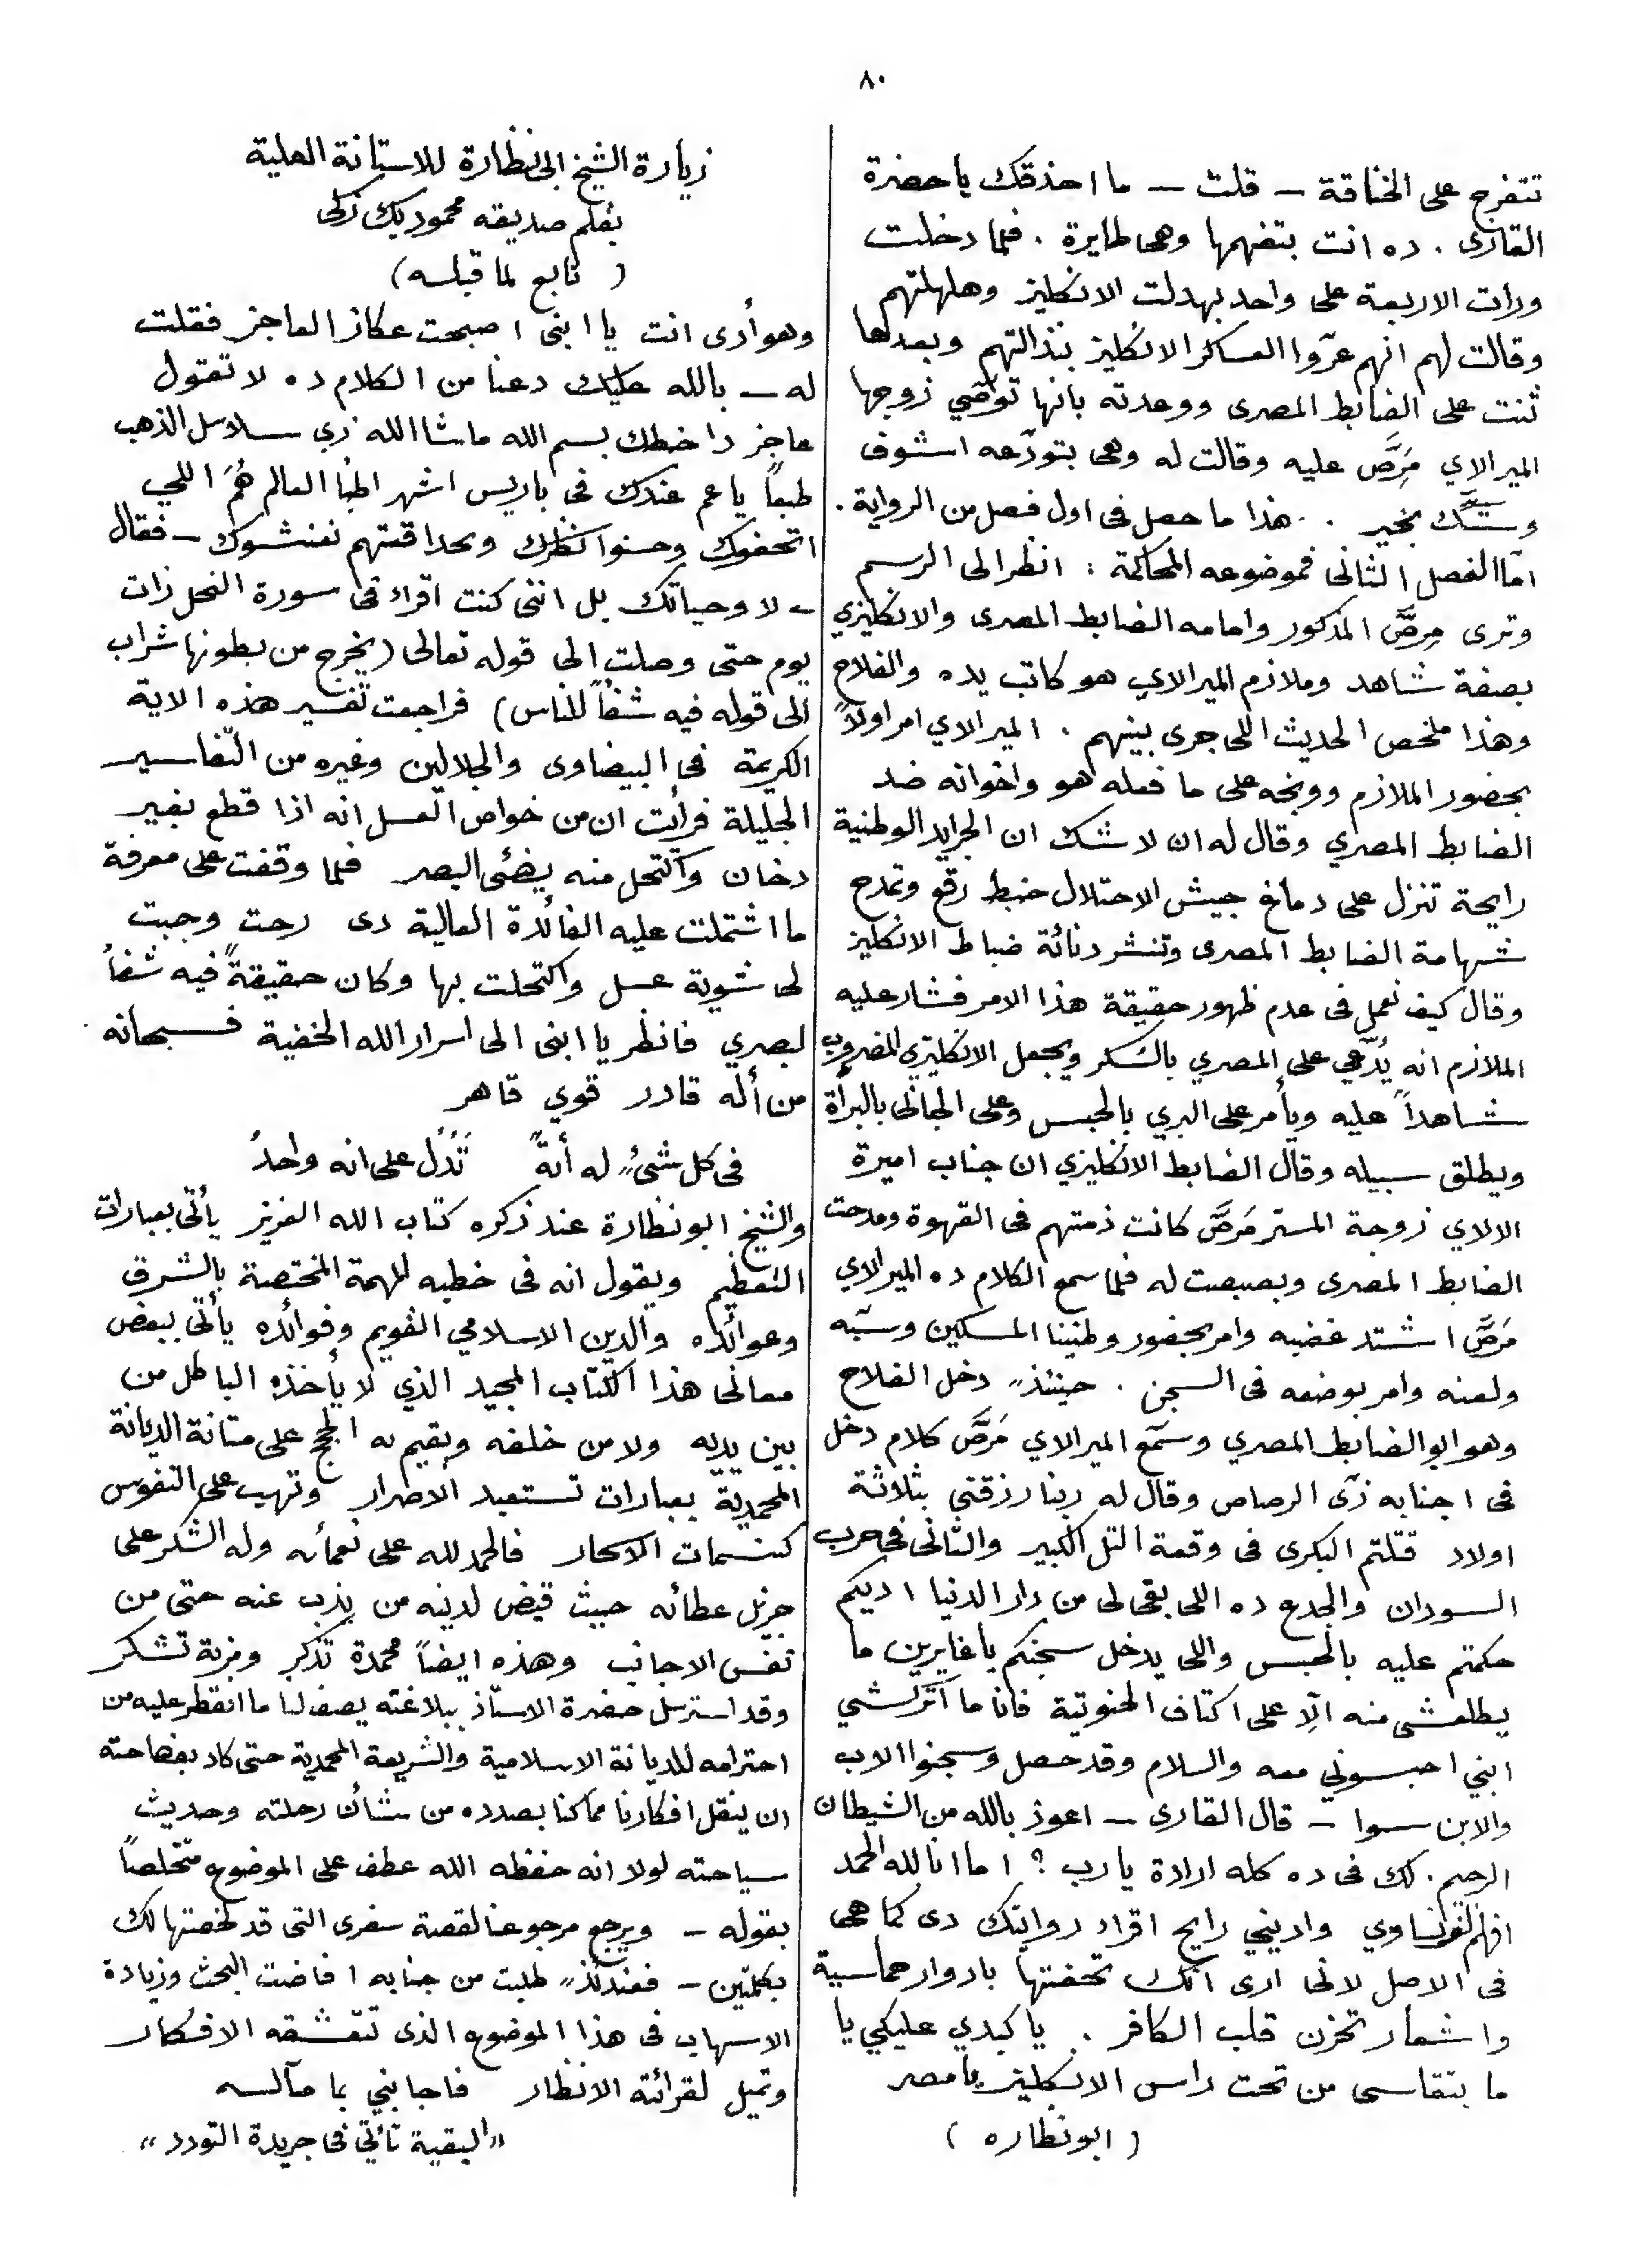 ٨٠
تتفرج على الخناقة – قلت – ما احذقك يا حضرة
القارى . ده انت بتفهمها وهى طايرة . فلما دخلت
ورات الاربعة على واحد بهدلت الانكليز وهلهلتهم
وقالت لهم انهم عرّوا العساكر الانكليز بنذالتهم وبعدها
ثنت على الضابط المصرى ووعدته بانها توصّي زوجها
الميرالاي مَرَصَّ عليه وقالت له وهى بتودّعه اشوف
وشّك بخير . . هذا ما حصل فى اول فصل من الرواية .
امّا الفصل الثانى فموضوعه المحاكمة : انظر الى الرسم
وترى مرصَّ المذكور وامامه الضابط المصرى والانكليزي
بصفة شاهد وملازم الميرالاي هو كاتب يده والفلاح
وهذا ملخص الحديث اللى جرى بينهم . الميرالاي امر اولاً
بحضور الملازم ووبخه على ما فعله هو واخوانه ضد
الضابط المصري وقال له ان لا شك ان الجرايد الوطنية
رايحة تنزل على دماغ جيش الاحتلال خبط رقع وتمدح
شهامة الضابط المصرى وتنشر دنائة ضباط الانكليز
وقال كيف نعمل فى عدم ظهور حقيقة هذا الامر فشار عليه
الملازم انه يُدّعي على المصري بالسكر ويجعل الانكليزي المضروب
شاهداً عليه ويأمر على البري بالحبس وعلى الجانى بالبرأة
ويطلق سبيله وقال الضابط الانكليزي ان جناب اميرة
الالاي زوجة المستر مَرَصَّ كانت ذمتهم فى القهوة ومدحت
الضابط المصرى وبصبصت له فلما سمع الكلام ده الميرالاي
مَرَصَّ اشتد غضبه وامر بحضور وطنينا المسكين وسبّه
ولعنه وامر بوضعه فى السجن . حينئذٍ دخل الفلاح
وهو ابو الضابط المصري وسمّع الميرالاي مَرَصَّ كلام دخل
فى اجنابه زىّ الرصاص وقال له ربنا رزقني بثلاثة
اولاد قتلتم البكرى فى وقعة التل الكبير والثانى فى حرب
السودان والجدع ده اللى بقى لى من دار الدنيا اديكم
حكمتم عليه بالحبس واللى يدخل سجنكم يا غايرين ما
يطلعشى منه الّا على اكتاف الحنوتية فانا ما اتركشي
ابني احبسوني معه والسلام وقد حصل وسجنوا الاب
والابن سوا – قال القارى – اعوذ بالله من الشيطان
الرجيم . لك فى ده كله ارادة يا رب ؟ اما انا لله الحمد
افهم فرنساوي واديني رايح اقراء روايتك دى كما هى
فى الاصل لانى ارى انك تحفتها بادوار حماسية
واشعار تحزن قلب الكافر . يا كبدي عليكي يا
ما بتقاسى من تحت راس الانكليز يا مصر
( ابو نظاره )
زيارة الشيخ ابى نظارة للاستانة العلية
بقلم صديقه محمود بك زكى
( تابع لما قبله )
وهو أدى انت يا ابنى اصبحت عكاز العاجز فقلت
له – بالله عليك دعنا من الكلام ده لا تقول
عاجز دا خطك بسم الله ماشا الله زي سلاسل الذهب
طبعاً يا عم عندك فى باريس اشهر اطبا العالم هُمَ اللي
اتحفوك وحسنوا نظرك وبحداقتهم نغنشوك – فقال
– لا وحياتك بل اننى كنت اقراء فى سورة النحل ذات
يوم حتى وصلت الى قوله تعالى (يخرج من بطونها شراب
الى قوله فيه شفاً للناس) فراجعت تفسير هذه الاية
الكريمة فى البيضاوى والجلالين وغيره من التّفاسير
الجليلة فرأيت ان من خواص العسل انه اذا قطع بغير
دخان واكتحل منه يضئى البصر فلما وقفت على معرفة
ما اشتملت عليه الفائدة العالية دى رحت وجبت
لى شوية عسل واكتحلت بها وكان حقيقةً فيه شفاً
لبصري فانظر يا ابنى الى اسرار الله الخفية فسبحانه
من أله قادر قوي قاهر
فى كل شئٍ له أيةً تَدُل على انه واحدُ
والشيخ ابو نظارة عند ذكره كتاب الله العزيز يأتى بعبارات
التعظيم ويقول انه فى خطبه المهمة المختصة بالشرق
وعوائده والدين الاسلامي القويم وفوائده يأتى ببعض
معانى هذا الكتاب المجيد الذي لا يأخذه الباطل من
بين يديه ولا من خلفه ويقيم به الحجج على متانة الديانة
المحمدية بعبارات تستعبد الاحرار وتهب على النفوس
كنسمات الاسحار فالحمد لله على نعمائه وله الشكر على
جزيل عطائه حيث قيض لدينه من يذب عنه حتى من
نفس الاجانب وهذه ايضاً محمدة تذكر ومزية تشكر
وقد استرسل حضرة الاستاذ ببلاغته يصف لنا ما انفطر عليه من
احترامه للديانة الاسلامية والشريعة المحمدية حتى كاد بفصاحته
ان ينقل افكارنا مما كنا بصدده من شأن رحلته وحديث
سياحته لولا انه حفظه الله عطف على الموضوع متخلصاً
بقوله – ويرجع مرجوعنا لقصة سفرى التى قد لخصتها لك
بكلمتين – فعندئذٍ طلبت من جنابه افاضت البحث وزيادة
الاسهاب فى هذا الموضوع الذى تتعشقه الافكار
وتميل لقرائته الانظار فاجابني بما مآله
«البقية تأتي فى جريدة التودد»